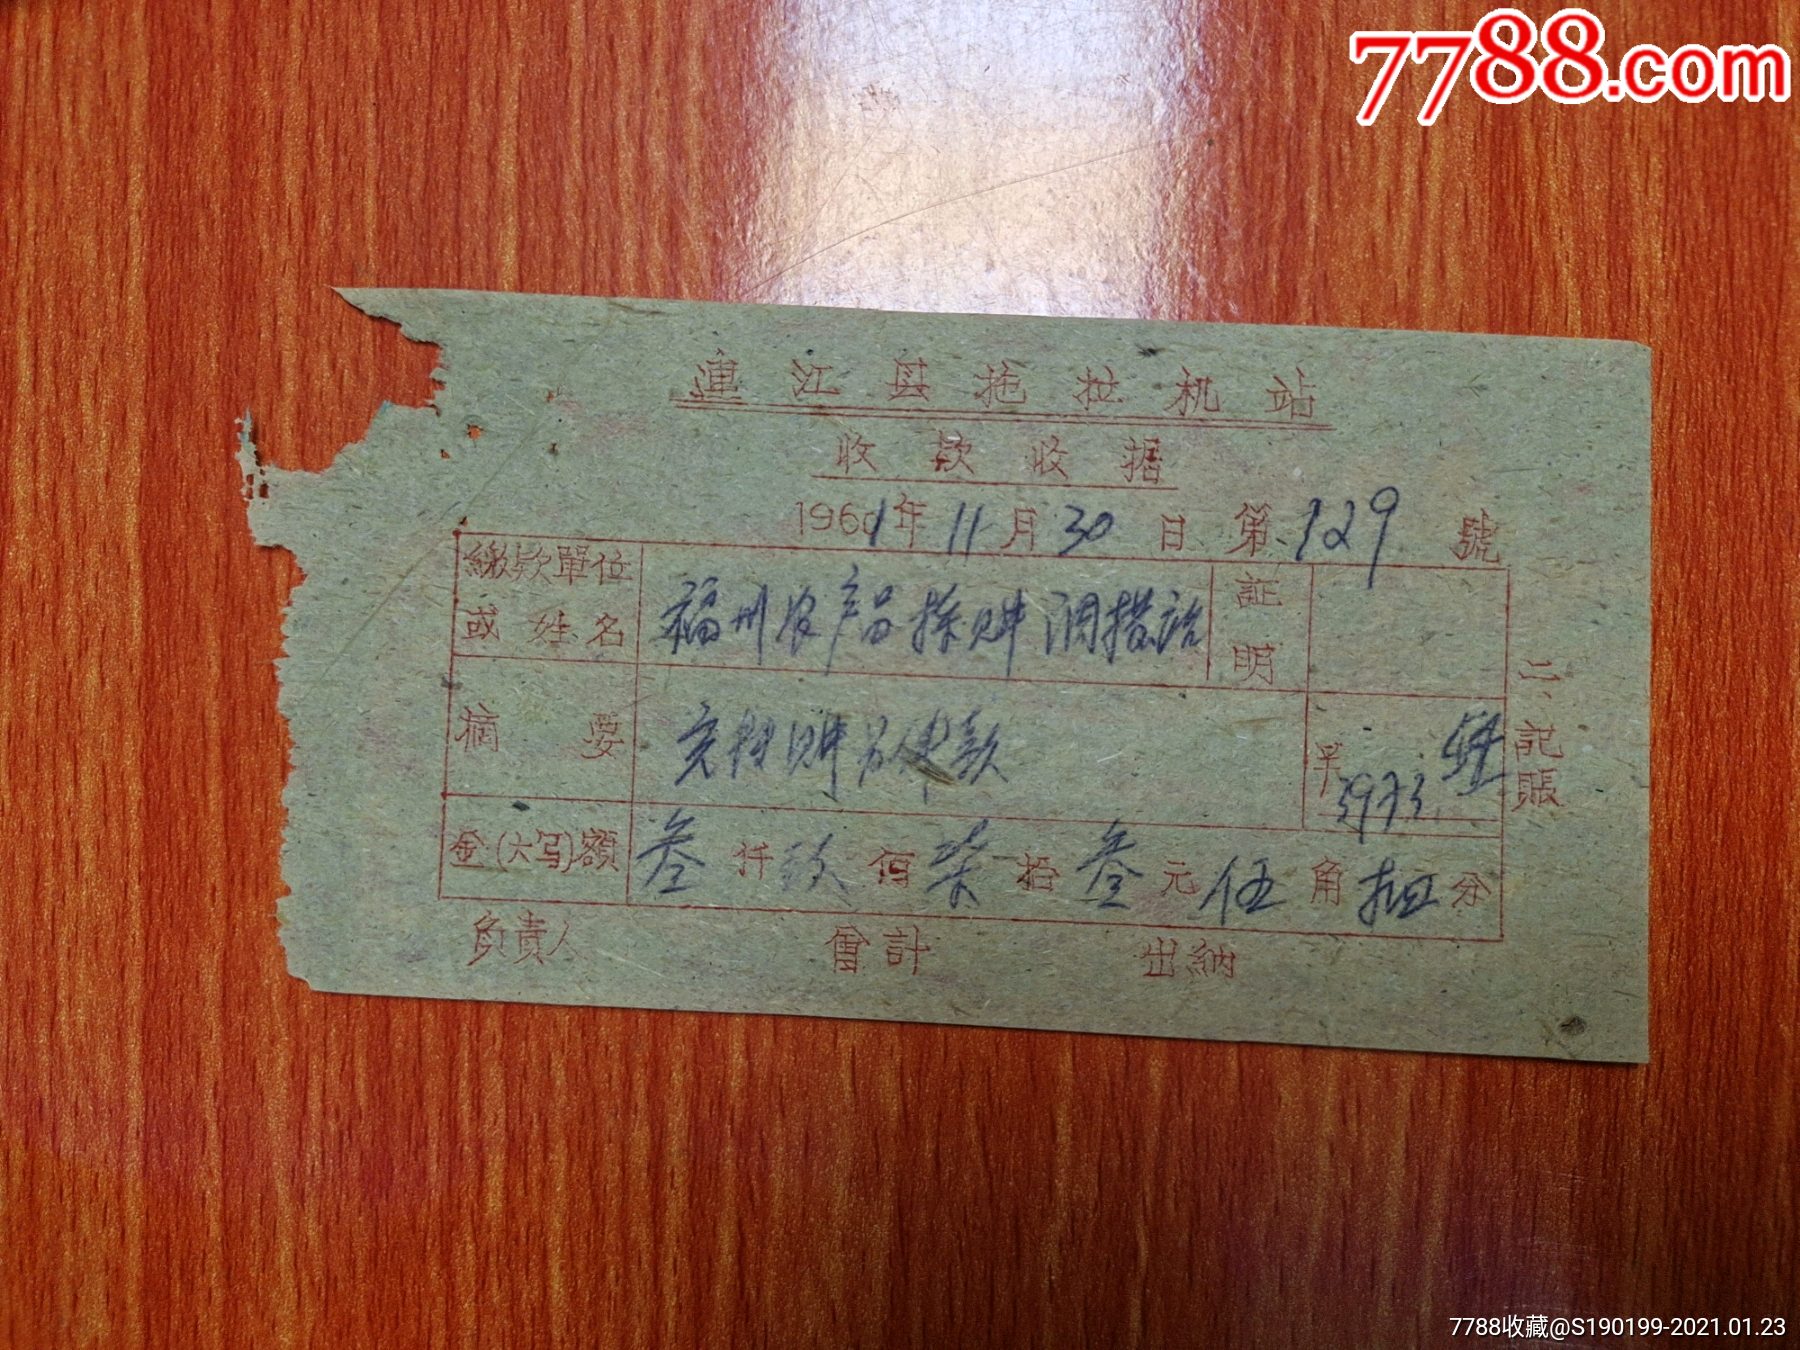 7788.com
連江县拖拉机站
收款收据
1961年11月30日 第129號
繳款單位 福州农产品採购调拨站 証
或姓名 明
摘要 购 款 ¥3973.54
金(大写)額 叁仟玖佰柒拾叁元伍角肆分
負責人 會計 出納
二、記賬
7788收藏@S190199-2021.01.23